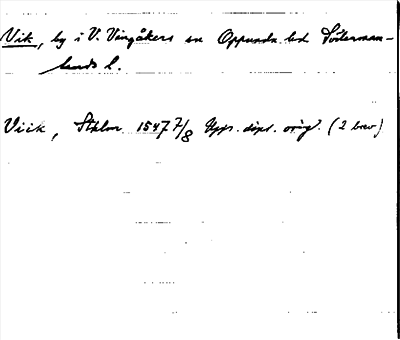 Vik, by i V. Vingåkers sn Oppunda hd Söderman-
lands l.
Viik, Sthlm 1547 7/8 Upps. dipl. orig. (2 brev)